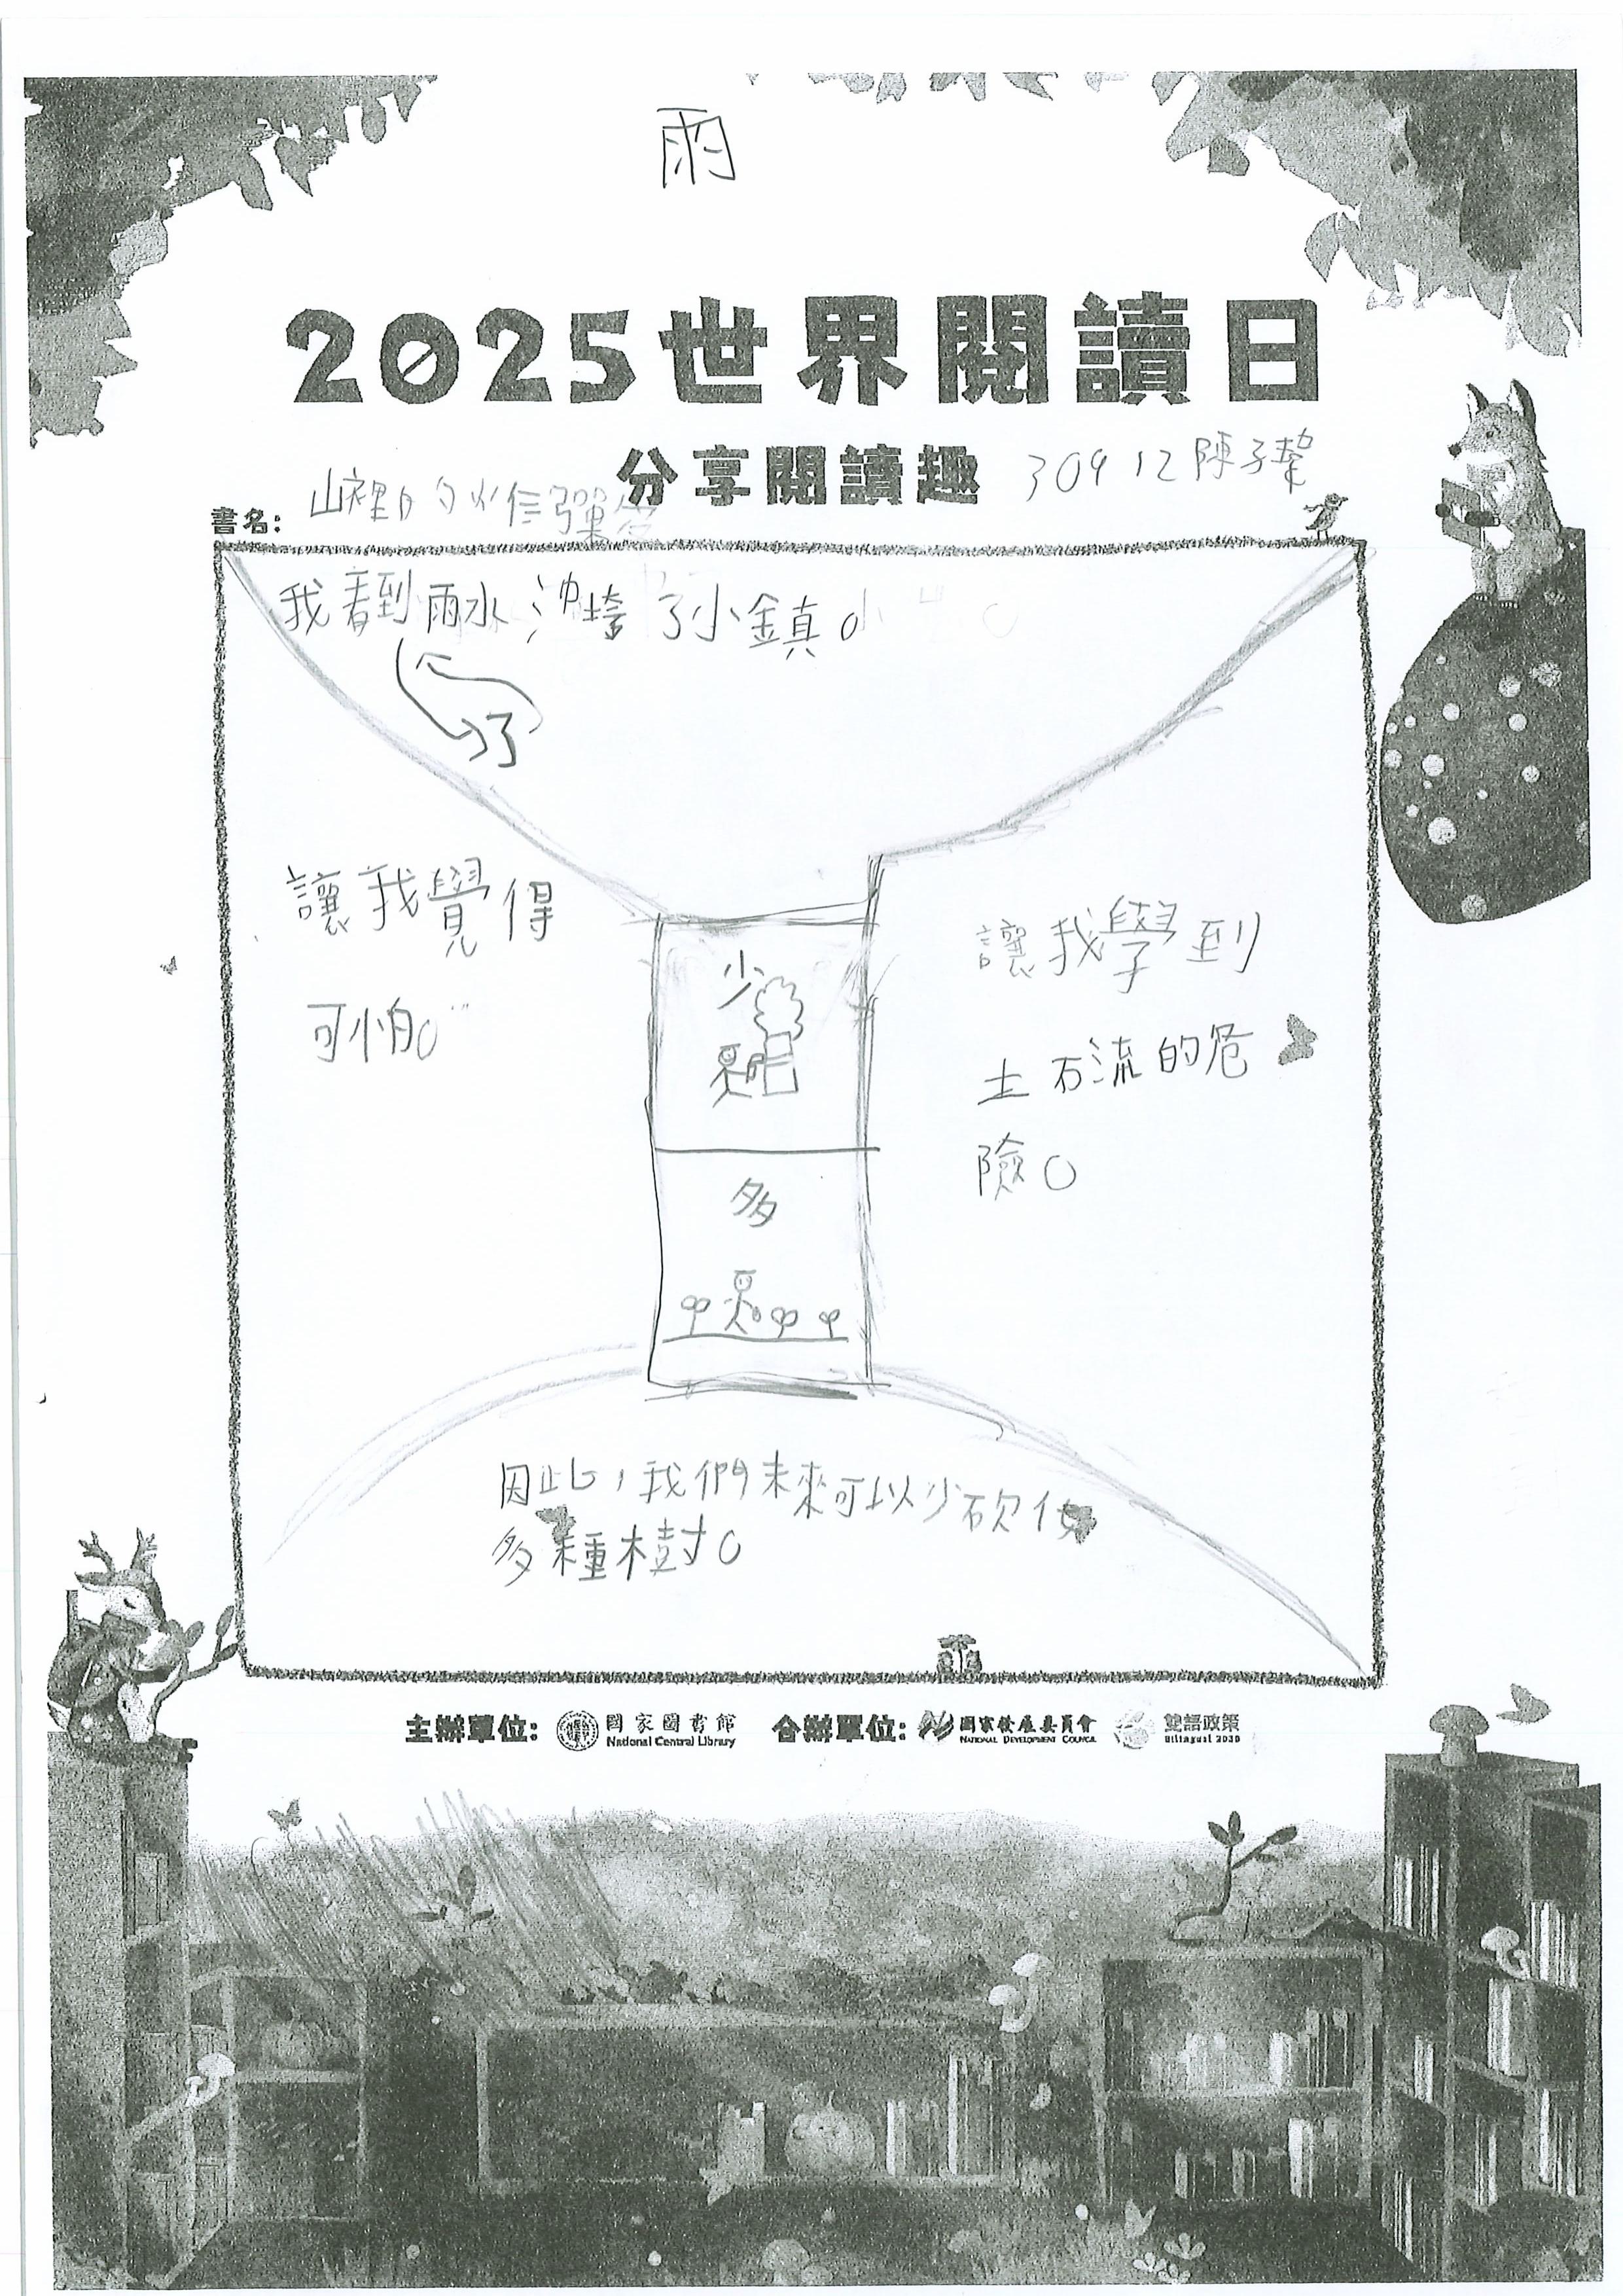 雨
2025世界閱讀日
分享閱讀趣
30912陳子潔
書名：
山裡的水信彈
我看到雨水沖垮了小鎮。
了
讓我覺得
可怕。
讓我學到
土石流的危
險。
少
多
因此，我們未來可以少砍伐
多種樹。
主辦單位：
國家圖書館
National Central Library
合辦單位：
國家發展委員會
NATIONAL DEVELOPMENT COUNCIL
雙語政策
Bilingual 2030